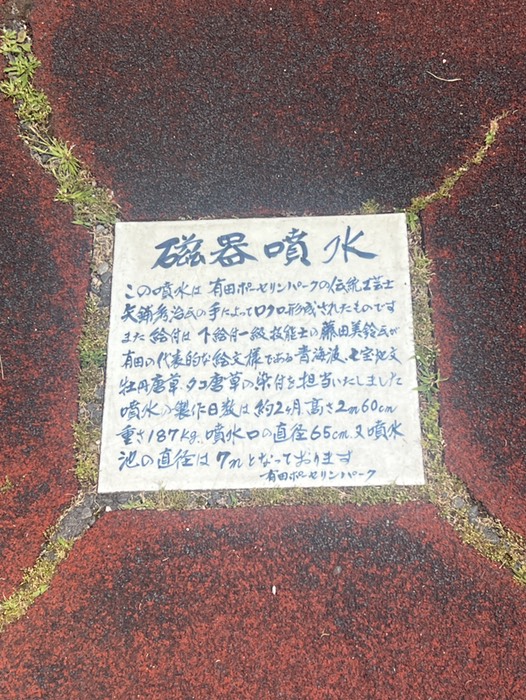 磁器噴水
この噴水は 有田ポーセリンパークの伝統工芸士
矢鋪秀治氏の手によってロクロ形成されたものです
また絵付は 下絵付一級技能士の藤田美鈴氏が
有田の代表的な絵文様である青海波、七宝地文
牡丹唐草、タコ唐草の染付を担当いたしました
噴水の製作日数は約2ヶ月 高さ2m60cm
重さ187kg、噴水口の直径65cm 又噴水
池の直径は7mとなっております
有田ポーセリンパーク